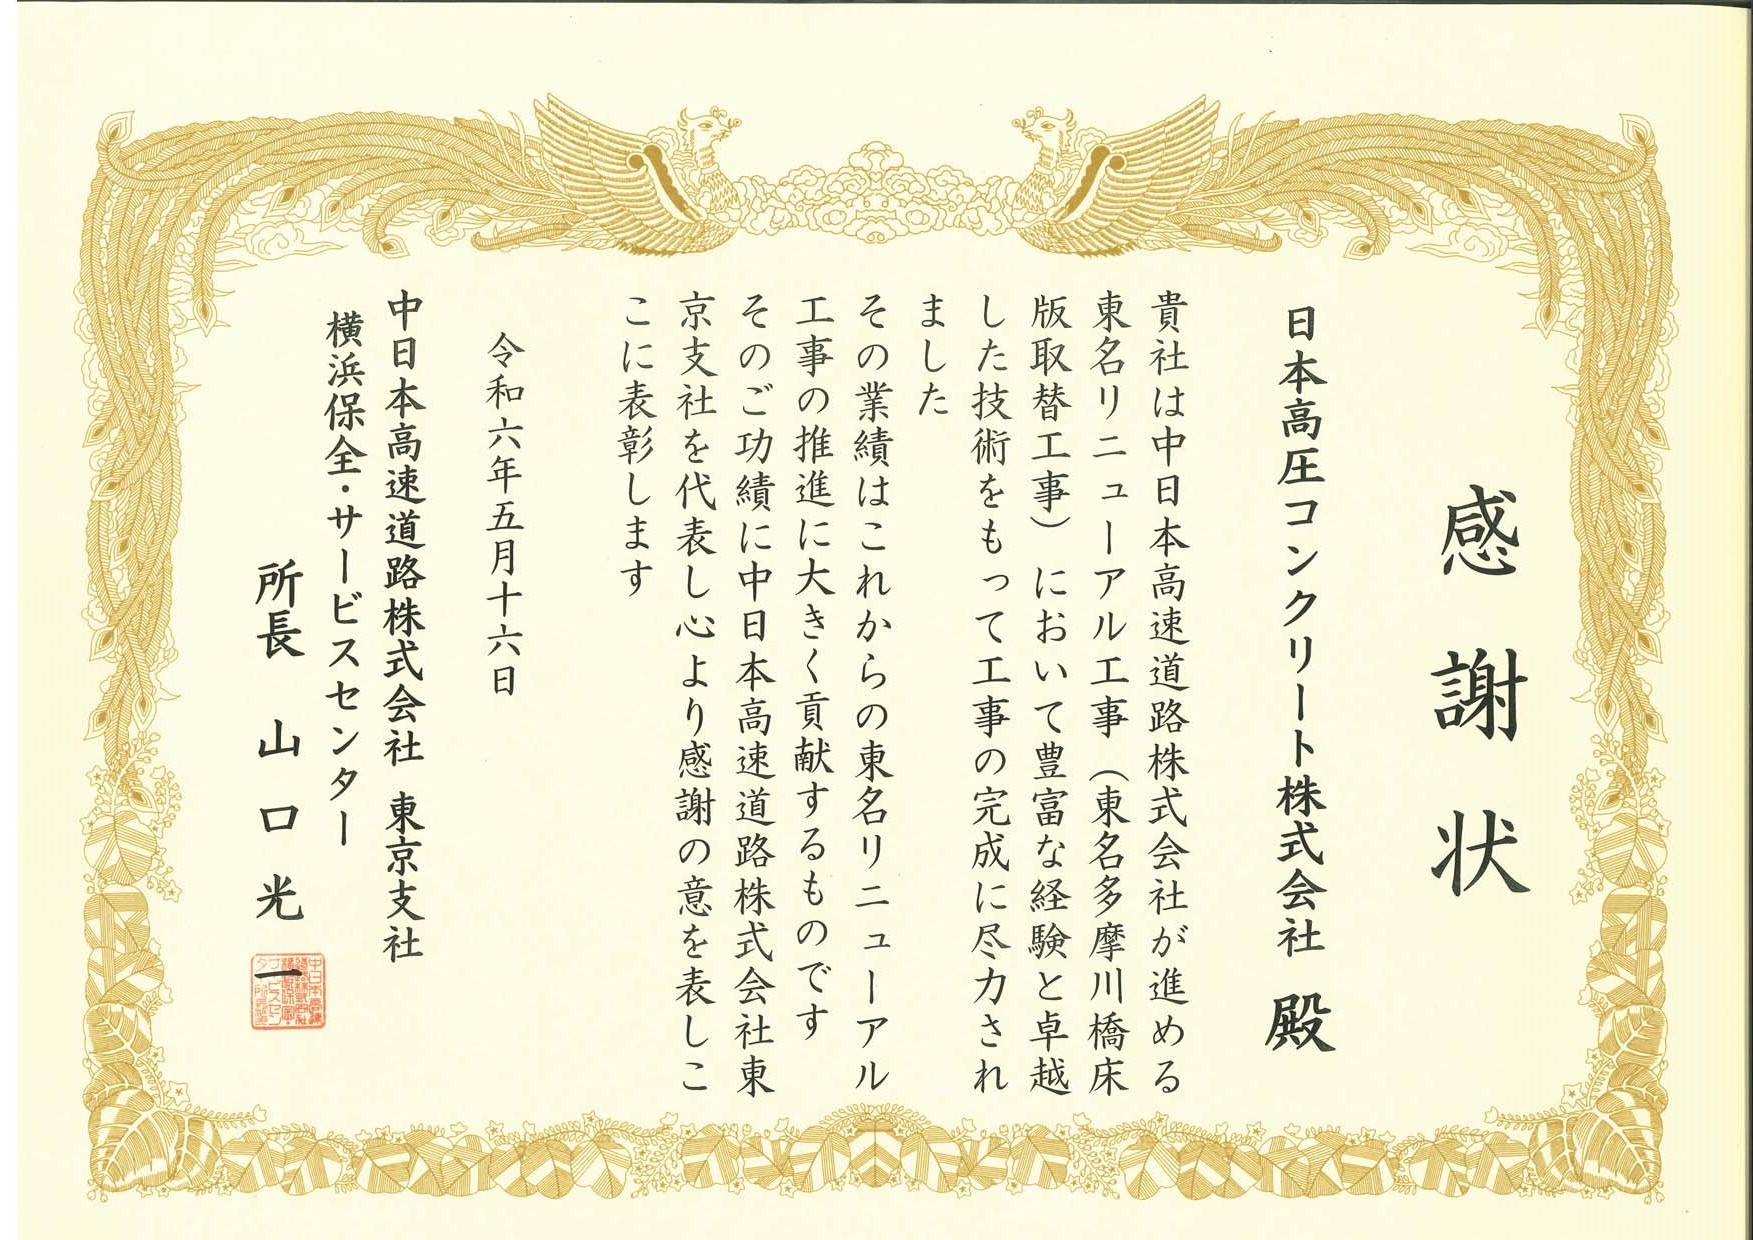 感謝状
日本高圧コンクリート株式会社 殿
貴社は中日本高速道路株式会社が進める
東名リニューアル工事（東名多摩川橋床
版取替工事）において豊富な経験と卓越
した技術をもって工事の完成に尽力され
ました
その業績はこれからの東名リニューアル
工事の推進に大きく貢献するものです
そのご功績に中日本高速道路株式会社東
京支社を代表し心より感謝の意を表しこ
こに表彰します
令和六年五月十六日
中日本高速道路株式会社 東京支社
横浜保全・サービスセンター
所長 山口光一